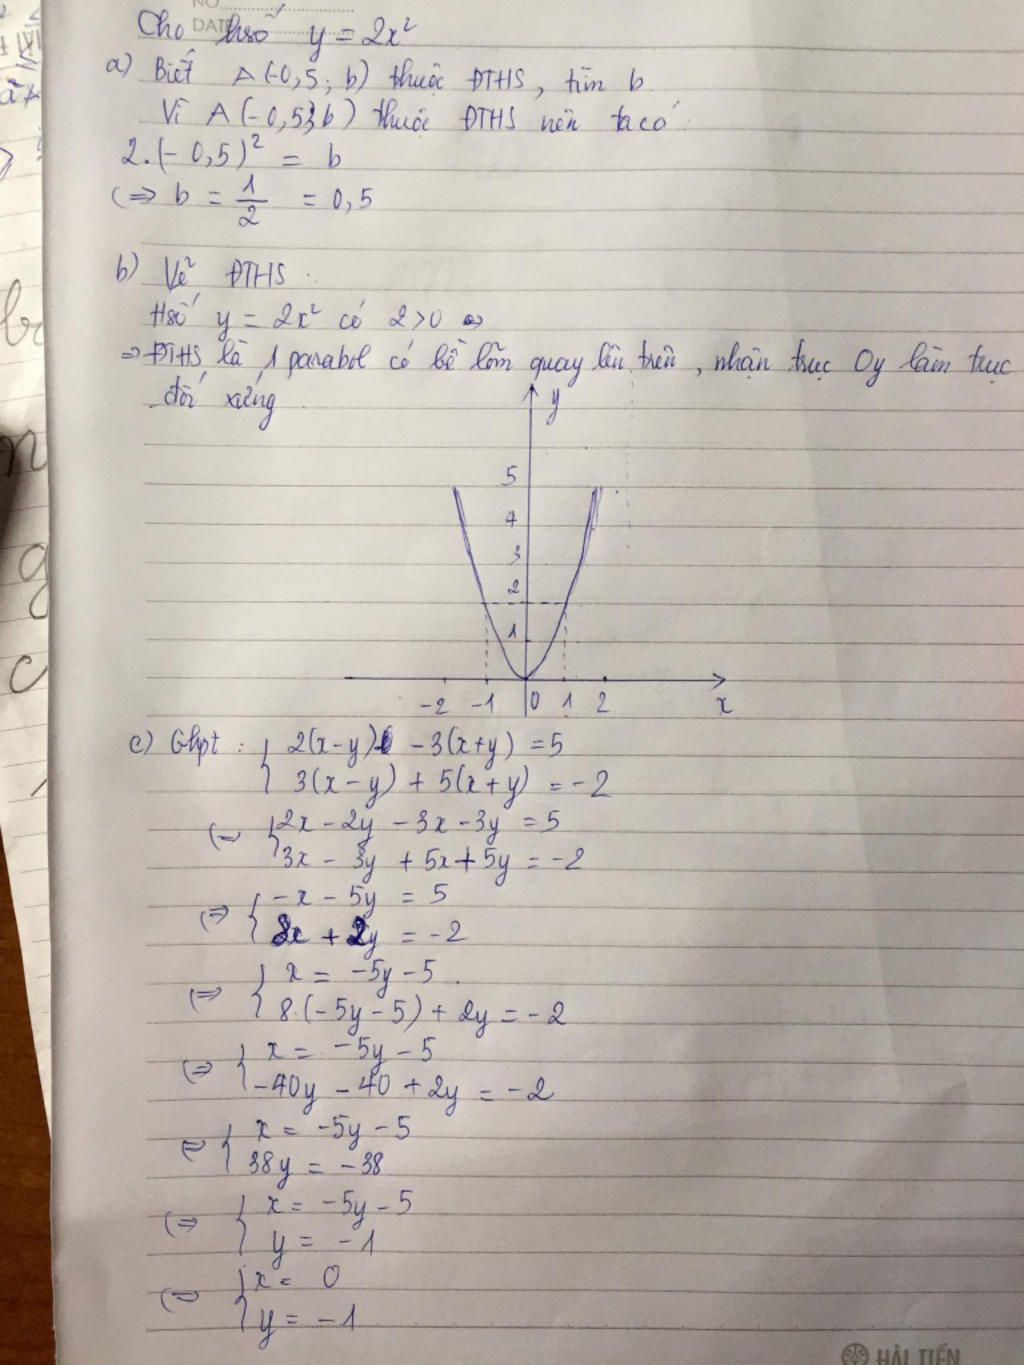 NO.
DATE
Cho hsố y = 2x²
a) Biết A(-0,5; b) thuộc ĐTHS, tìm b
Vì A(-0,5; b) thuộc ĐTHS nên ta có:
2.(-0,5)² = b
(=> b = 1/2 = 0,5
b) Vẽ ĐTHS.
Hsố y = 2x² có 2>0 =>
=> ĐTHS là 1 parabol có bề lõm quay lên trên, nhận trục Oy làm trục
đối xứng
y
5
4
3
2
1
-2 -1 0 1 2 x
c) Ghpt: { 2(x-y) - 3(x+y) = 5
3(x-y) + 5(x+y) = -2
(=> { 2x - 2y - 3x - 3y = 5
3x - 3y + 5x + 5y = -2
(=> { -x - 5y = 5
8x + 2y = -2
(=> { x = -5y - 5
8.(-5y - 5) + 2y = -2
(=> { x = -5y - 5
-40y - 40 + 2y = -2
(=> { x = -5y - 5
38y = -38
(=> { x = -5y - 5
y = -1
(=> { x = 0
y = -1
HẢI TIẾN